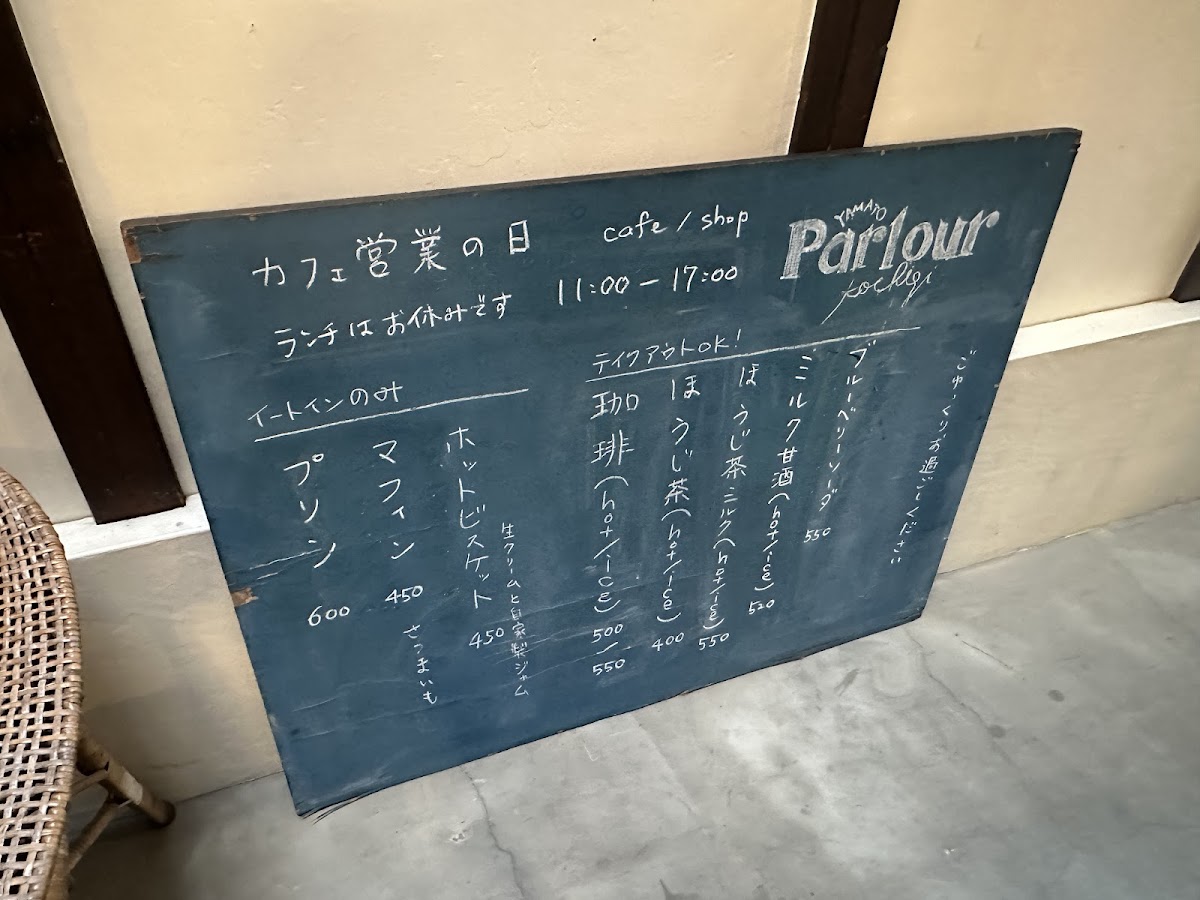 カフェ営業の日
ランチはお休みです
cafe / shop
11:00 − 17:00
YAMATO
Parlour
tochigi
テイクアウトOK!
ブルーベリーソーダ 550
ミルク甘酒(hot/ice) 520
ほうじ茶ミルク(hot/ice) 550
ほうじ茶(hot/ice) 400
珈琲(hot/ice) 500/550
イートインのみ
ホットビスケット 450
生クリームと自家製ジャム
マフィン 450
さつまいも
プリン 600
ごゆっくりお過ごしください